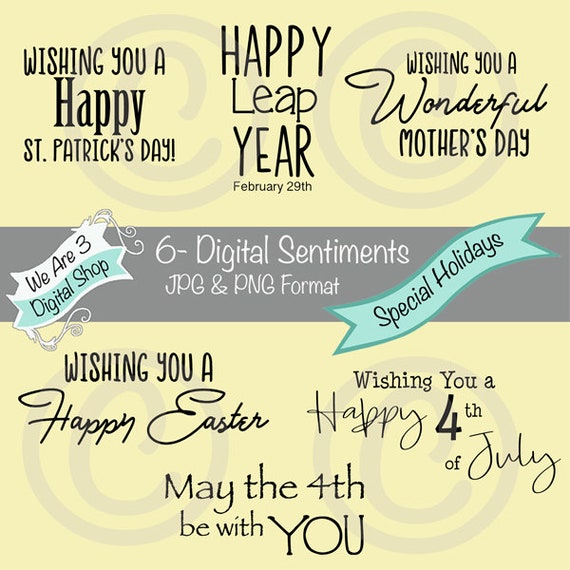 WISHING YOU A
Happy
ST. PATRICK'S DAY!
HAPPY
Leap
YEAR
February 29th
WISHING YOU A
Wonderful
MOTHER'S DAY
We Are 3
Digital Shop
6- Digital Sentiments
JPG & PNG Format
Special Holidays
WISHING YOU A
Happy Easter
Wishing You a
Happy 4th
of July
May the 4th
be with YOU